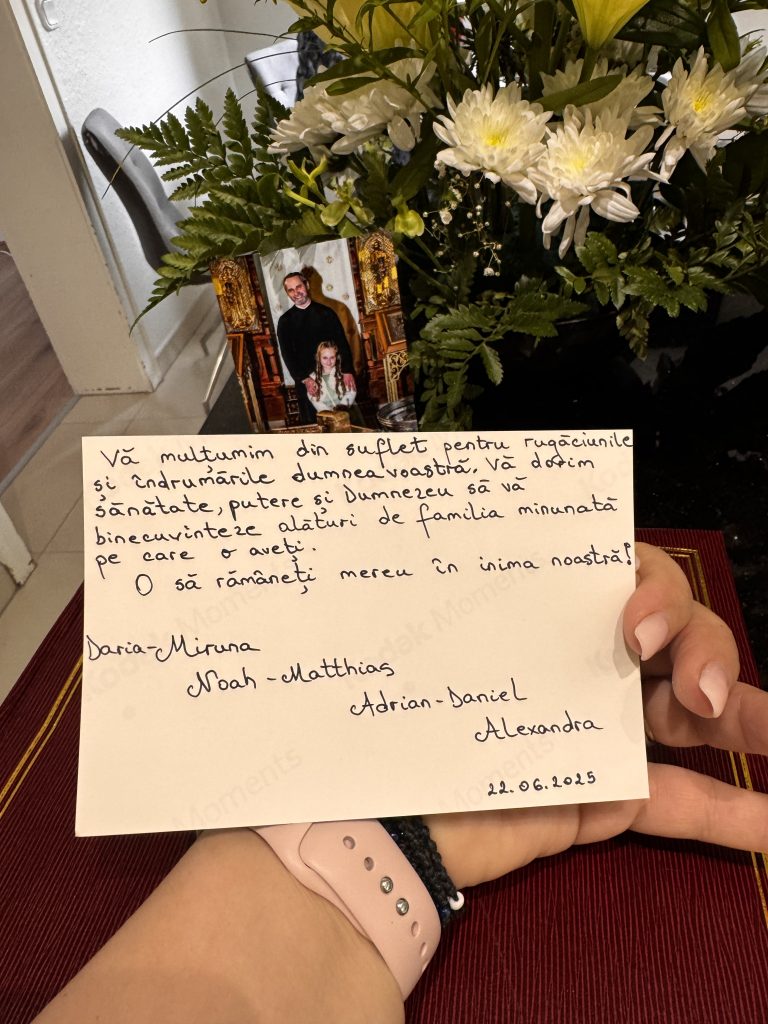 Vă mulțumim din suflet pentru rugăciunile
și îndrumările dumneavoastră. Vă dorim
sănătate, putere și Dumnezeu să vă
binecuvinteze alături de familia minunată
pe care o aveți.
O să rămâneți mereu în inima noastră!
Daria-Miruna
Noah-Matthias
Adrian-Daniel
Alexandra
22.06.2025
Kodak Moments
Moments
Moments